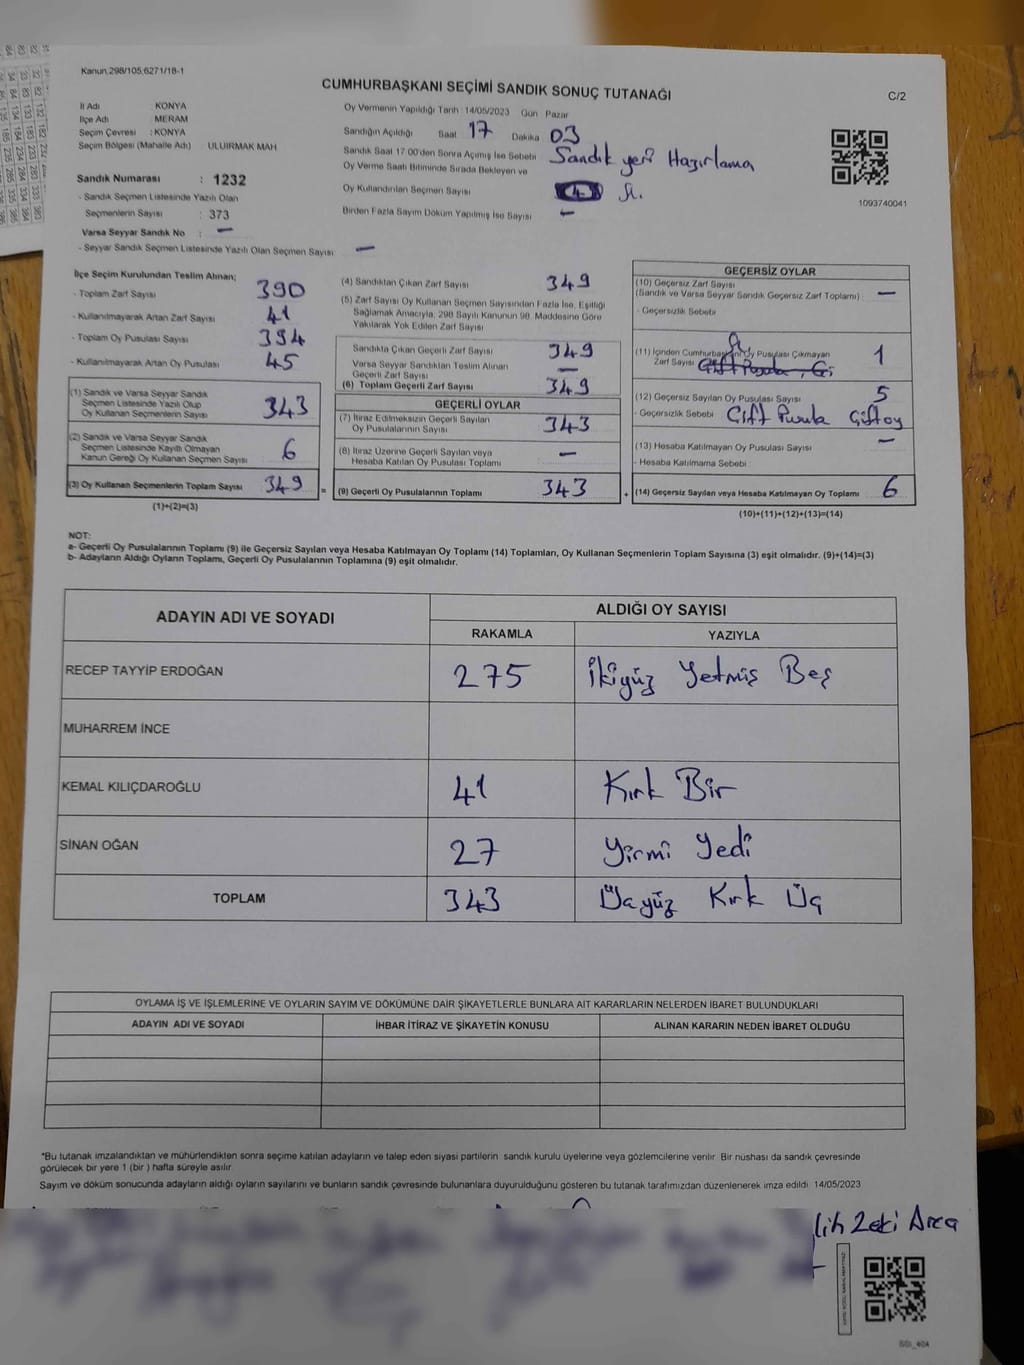 Kanun,298/105,6271/18-1
CUMHURBAŞKANI SEÇİMİ SANDIK SONUÇ TUTANAĞI
C/2
İl Adı : KONYA
İlçe Adı : MERAM
Seçim Çevresi : KONYA
Seçim Bölgesi (Mahalle Adı) : ULUIRMAK MAH
Sandık Numarası : 1232
- Sandık Seçmen Listesinde Yazılı Olan
Seçmenlerin Sayısı : 373
Varsa Seyyar Sandık No : –
- Seyyar Sandık Seçmen Listesinde Yazılı Olan Seçmen Sayısı : –
Oy Vermenin Yapıldığı Tarih : 14/05/2023 Gün Pazar
Sandığın Açıldığı Saat 17 Dakika 03
Sandık Saat 17:00'den Sonra Açımış İse Sebebi Sandık yeri Hazırlama
Oy Verme Saati Bitiminde Sırada Bekleyen ve
Oy Kullandırılan Seçmen Sayısı
Birden Fazla Sayım Döküm Yapılmış İse Sayısı –
1093740041
İlçe Seçim Kurulundan Teslim Alınan;
- Toplam Zarf Sayısı 390
- Kullanılmayarak Artan Zarf Sayısı 41
- Toplam Oy Pusulası Sayısı 394
- Kullanılmayarak Artan Oy Pusulası 45
(1) Sandık ve Varsa Seyyar Sandık
Seçmen Listesinde Yazılı Olup
Oy Kullanan Seçmenlerin Sayısı 343
(2) Sandık ve Varsa Seyyar Sandık
Seçmen Listesinde Kayıtlı Olmayan
Kanun Gereği Oy Kullanan Seçmen Sayısı 6
(3) Oy Kullanan Seçmenlerin Toplam Sayısı 349 =
(1)+(2)=(3)
(4) Sandıktan Çıkan Zarf Sayısı 349
(5) Zarf Sayısı Oy Kullanan Seçmen Sayısından Fazla İse, Eşitliği
Sağlamak Amacıyla, 298 Sayılı Kanunun 98. Maddesine Göre
Yakılarak Yok Edilen Zarf Sayısı
Sandıkta Çıkan Geçerli Zarf Sayısı 349
Varsa Seyyar Sandıktan Teslim Alınan
Geçerli Zarf Sayısı –
(6) Toplam Geçerli Zarf Sayısı 349
GEÇERLİ OYLAR
(7) İtiraz Edilmeksizin Geçerli Sayılan
Oy Pusulalarının Sayısı 343
(8) İtiraz Üzerine Geçerli Sayılan veya
Hesaba Katılan Oy Pusulası Toplamı –
(9) Geçerli Oy Pusulalarının Toplamı 343 +
GEÇERSİZ OYLAR
(10) Geçersiz Zarf Sayısı
(Sandık ve Varsa Seyyar Sandık Geçersiz Zarf Toplamı) : –
- Geçersizlik Sebebi :
(11) İçinden Cumhurbaşkanı Oy Pusulası Çıkmayan
Zarf Sayısı 1
(12) Geçersiz Sayılan Oy Pusulası Sayısı : 5
- Geçersizlik Sebebi : Çift Pusula Çift oy
(13) Hesaba Katılmayan Oy Pusulası Sayısı : –
- Hesaba Katılmama Sebebi :
(14) Geçersiz Sayılan veya Hesaba Katılmayan Oy Toplamı 6
(10)+(11)+(12)+(13)=(14)
NOT:
a- Geçerli Oy Pusulalarının Toplamı (9) ile Geçersiz Sayılan veya Hesaba Katılmayan Oy Toplamı (14) Toplamları, Oy Kullanan Seçmenlerin Toplam Sayısına (3) eşit olmalıdır. (9)+(14)=(3)
b- Adayların Aldığı Oyların Toplamı, Geçerli Oy Pusulalarının Toplamına (9) eşit olmalıdır.
ADAYIN ADI VE SOYADI ALDIĞI OY SAYISI
RAKAMLA YAZIYLA
RECEP TAYYİP ERDOĞAN 275 İkiyüz Yetmiş Beş
MUHARREM İNCE
KEMAL KILIÇDAROĞLU 41 Kırk Bir
SİNAN OĞAN 27 Yirmi Yedi
TOPLAM 343 Üçyüz Kırk Üç
OYLAMA İŞ VE İŞLEMLERİNE VE OYLARIN SAYIM VE DÖKÜMÜNE DAİR ŞİKAYETLERLE BUNLARA AİT KARARLARIN NELERDEN İBARET BULUNDUKLARI
ADAYIN ADI VE SOYADI İHBAR İTİRAZ VE ŞİKAYETİN KONUSU ALINAN KARARIN NEDEN İBARET OLDUĞU
*Bu tutanak imzalandıktan ve mühürlendikten sonra seçime katılan adayların ve talep eden siyasi partilerin sandık kurulu üyelerine veya gözlemcilerine verilir. Bir nüshası da sandık çevresinde
görülecek bir yere 1 (bir ) hafta süreyle asılır.
Sayım ve döküm sonucunda adayların aldığı oyların sayılarını ve bunların sandık çevresinde bulunanlara duyurulduğunu gösteren bu tutanak tarafımızdan düzenlenerek imza edildi. 14/05/2023
lih Zeki Arca